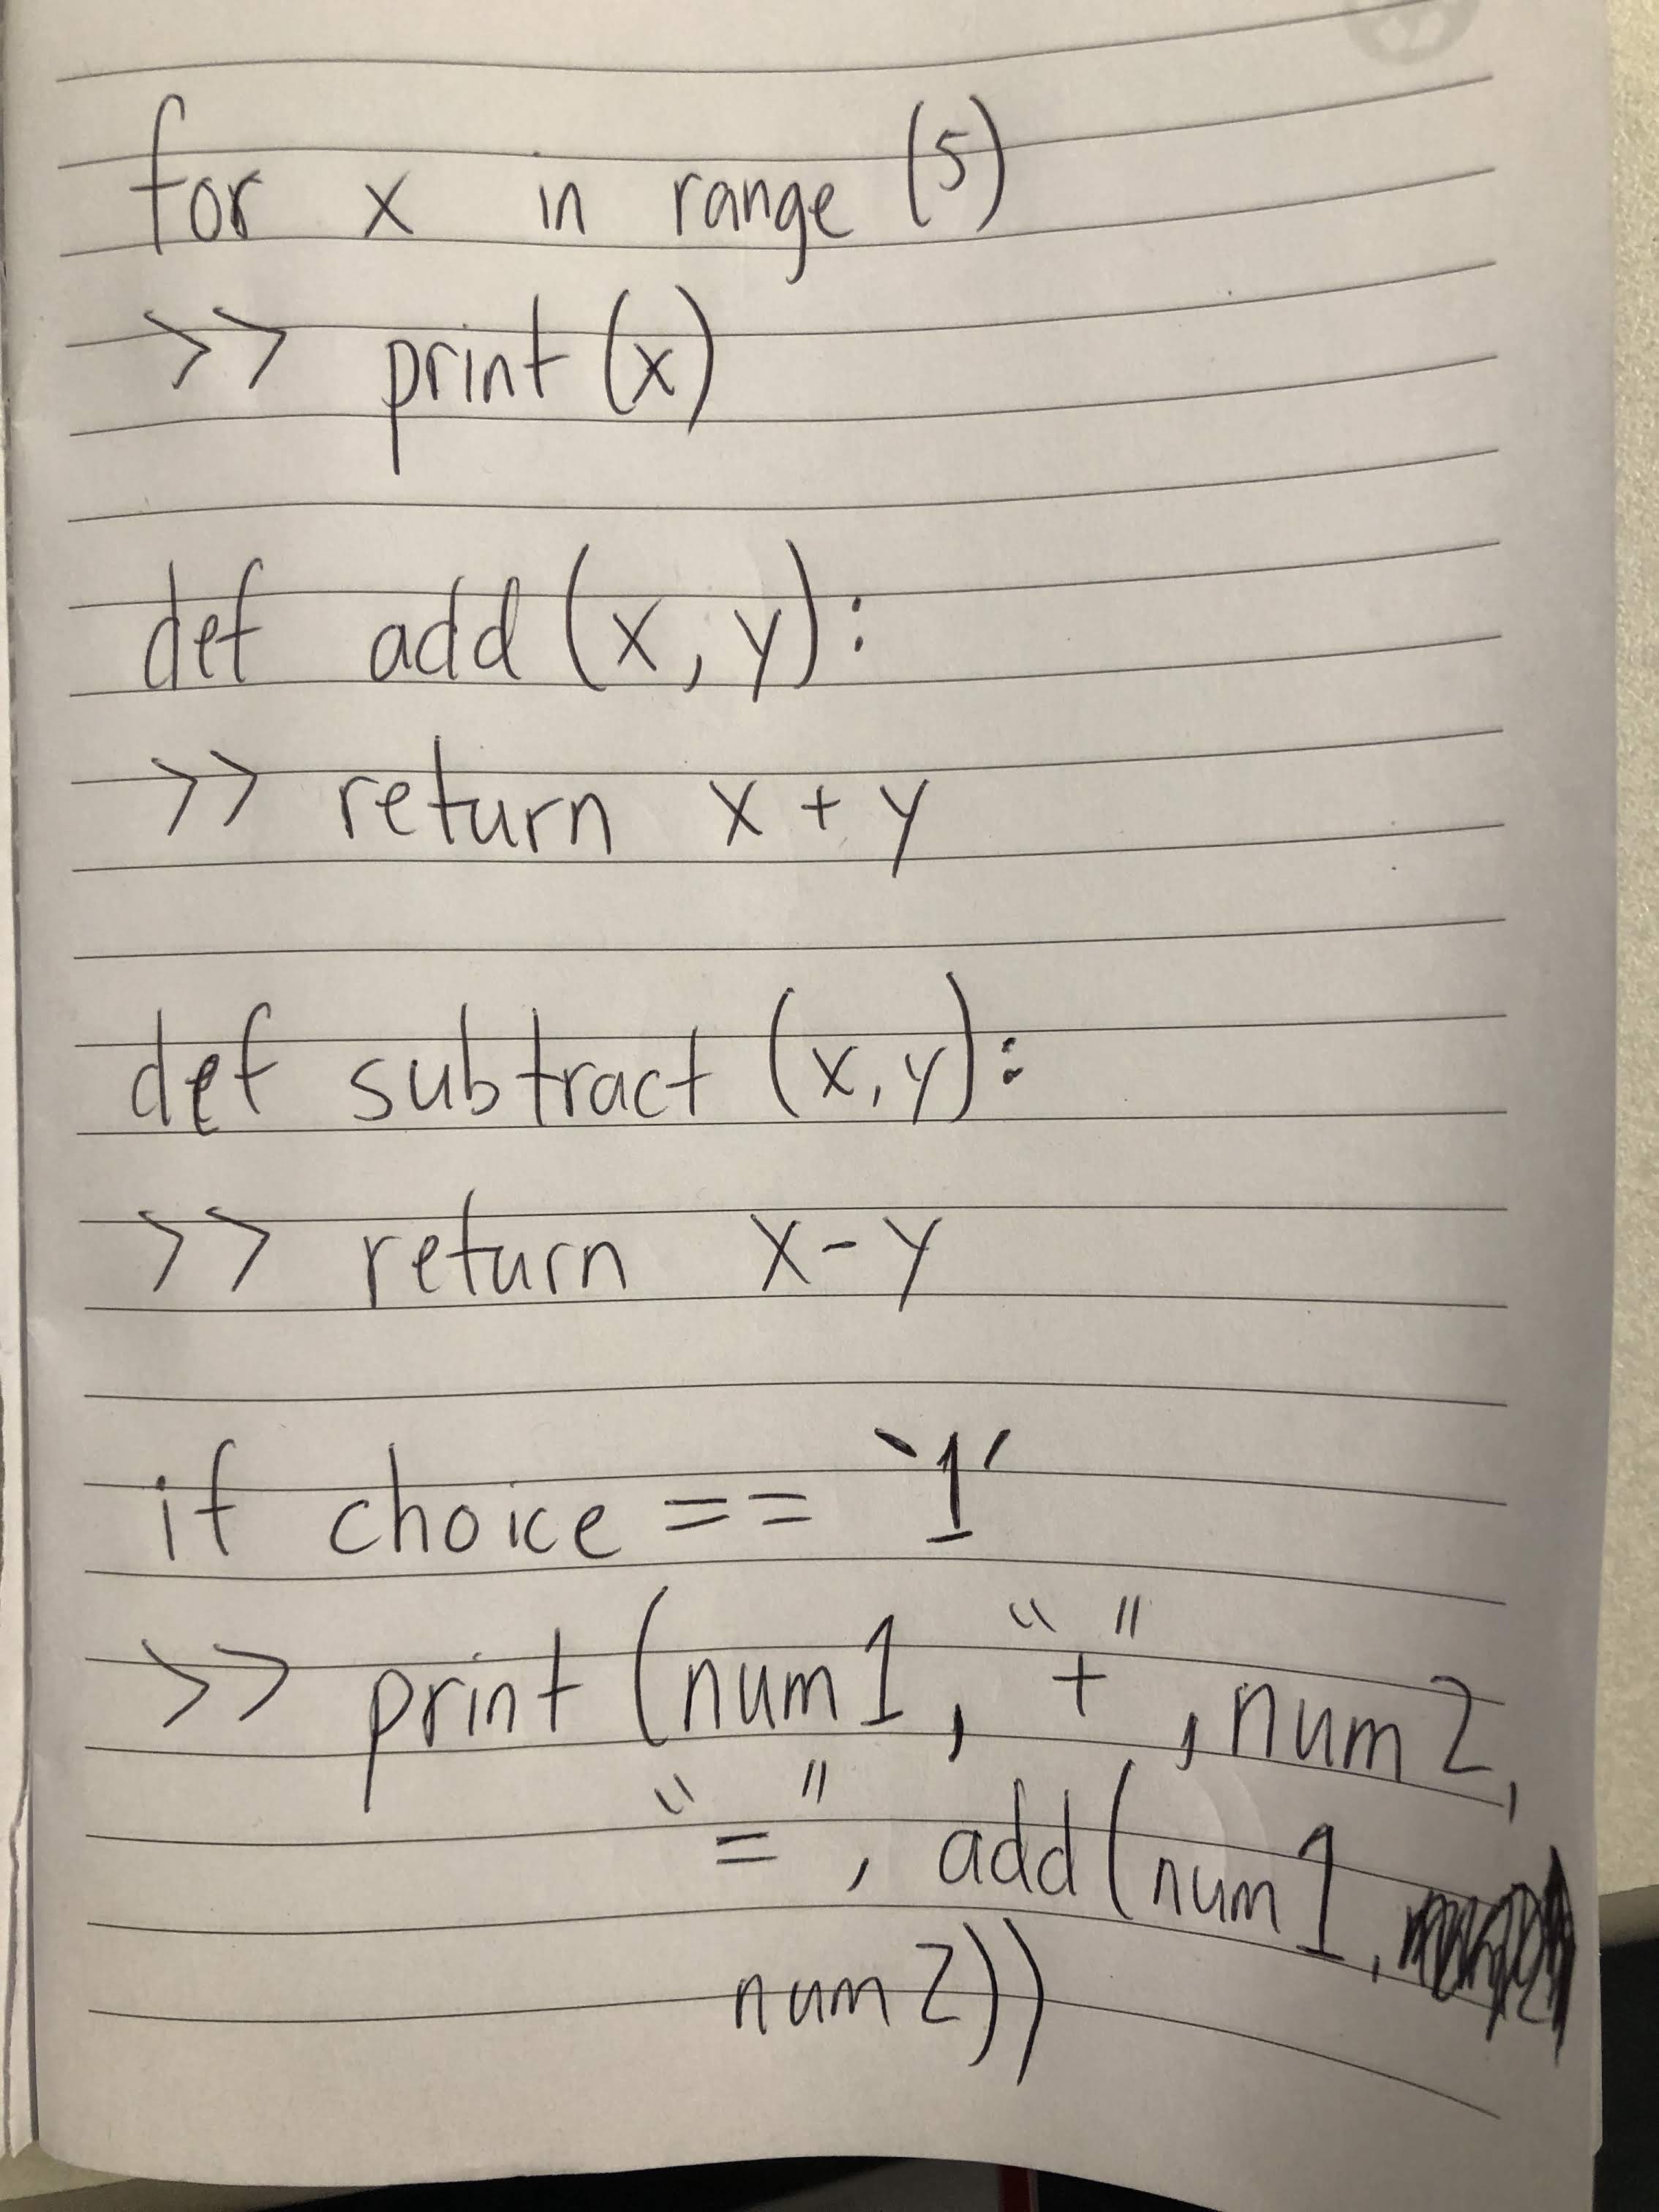 for x in range (5)
>> print (x)
def add (x, y):
>> return x + y
def subtract (x, y):
>> return x - y
if choice == '1'
>> print (num1, "+", num2,
"=", add (num1,
num2))